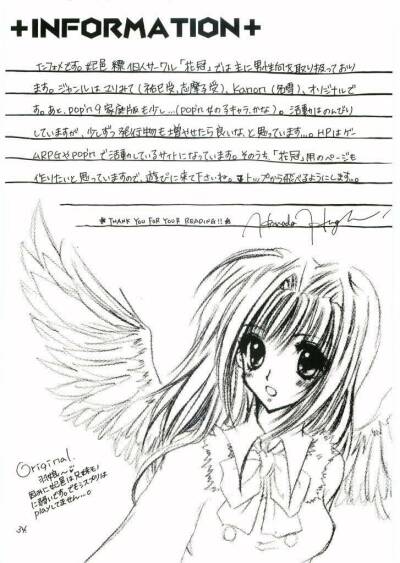 +INFORMATION+
インフォメです。妃邑 個人サークル「花冠」では主に男性向を取り扱っており
ます。ジャンルはマリみて(祐巳受、志摩子受)、Kanon、オリジナルで
す。あと、pop'n 9 家庭版も少し…(pop'nは のるキャラ、かな)。活動はのんびり
していますが、少しずつ発行物も増やせたら良いな、と思っています…。HPはゲ
ARPGやpop'nで活動しているサイトになっています。そのうち、「花冠」用のページも
作りたいと思っていますので、遊びに来て下さいね。トップから飛べるようにします…。
* THANK YOU FOR YOUR READING!! *
Original.
因みに妃邑は兄妹も
に弱いです。でもシスプリは
playしてません…。
34